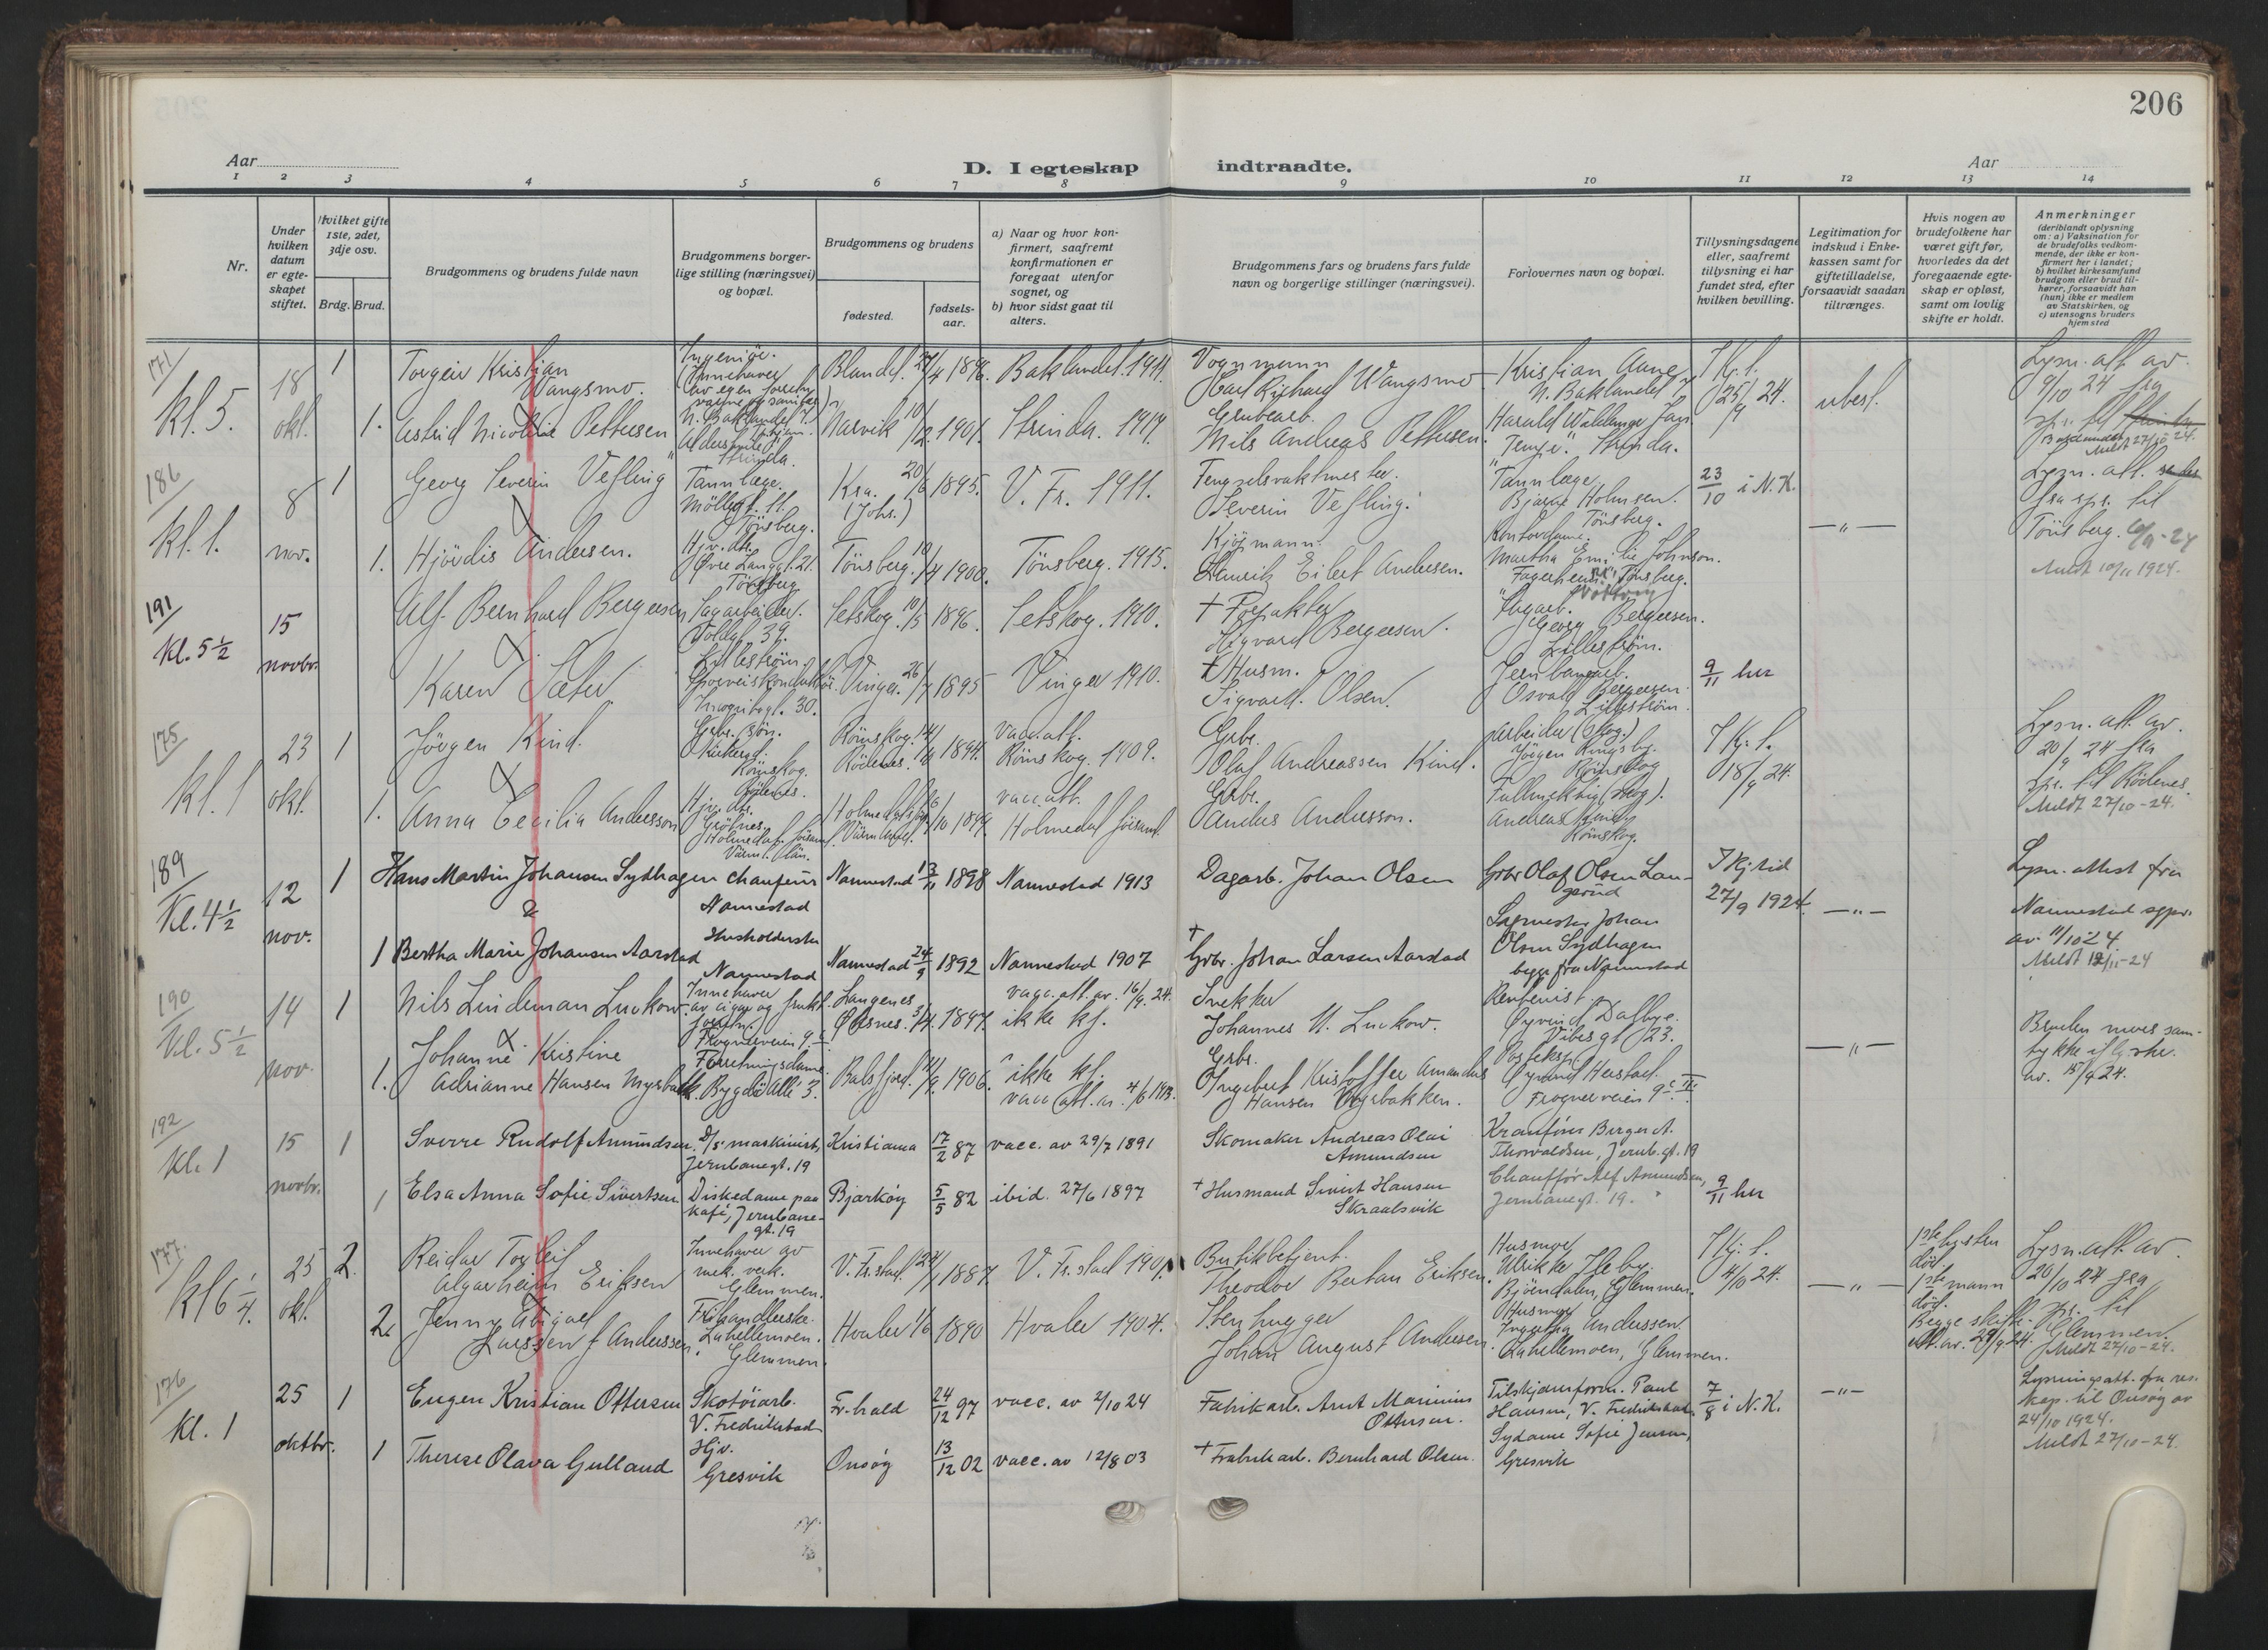 206
Aar
D. I egteskap indtraadte.
Aar
1 2 3 4 5 6 7 8 9 10 11 12 13 14
Nr.
Under hvilken datum er egteskapet stiftet.
Hvilket gifte 1ste, 2det, 3dje osv.
Brdg. Brud.
Brudgommens og brudens fulde navn
Brudgommens borgerlige stilling (næringsvei) og bopæl.
Brudgommens og brudens
fødested.
fødselsaar.
a) Naar og hvor konfirmert, saafremt konfirmationen er foregaat utenfor sognet, og
b) hvor sidst gaat til alters.
Brudgommens fars og brudens fars fulde navn og borgerlige stillinger (næringsvei).
Forlovernes navn og bopæl.
Tillysningsdagene eller, saafremt tillysning ei har fundet sted, efter hvilken bevilling.
Legitimation for indskud i Enkekassen samt for giftetilladelse, forsaavidt saadan tiltrænges.
Hvis nogen av brudefolkene har været gift før, hvorledes da det foregaaende egteskap er opløst, samt om lovlig skifte er holdt.
Anmerkninger
(deriblandt oplysning om: a) Vaksination for de brudefolks vedkommende, der ikke er konfirmert her i landet; b) hvilket kirkesamfund brudgom eller brud tilhører, forsaavidt han (hun) ikke er medlem av Statskirken, og c) utensogns bruders hjemsted
171
kl. 5.
18 okt.
1
Torgeir Kristian Wangsmo.
Ingeniör.
(Innehaver av egen
N. Baklandet 7.
27/4 1896.
Baklandet 1911.
Vognmann
Carl Richard Wangsmo
Kristian Aune
N. Baklandet 7
I Kj. t.
25/9 24.
ubest.
Lysn. att. av
9/10 24 fra
Meldt 27/10 24.
1.
Astrid Nicoline Pettersen
Strinda.
Narvik 10/12 1901.
Strinda. 1917.
Grubearb.
Nils Andreas Pettersen.
Harald
Strinda.
186
kl. 1.
8 nov.
1
Georg Severin Vefling
Tannlæge.
Möllegt. 11.
Tönsberg.
Kra. (Johs.)
20/6 1895.
V. Fr. 1911.
Fengselsvaktmester.
Severin Vefling.
Tannlæge
Bjarne Holmsen.
Tönsberg.
23/10 i N.K.
—„—
Lysn. att.
fra sps. til
Tönsberg. 6/11-24
Meldt 10/11 1924.
1.
Hjördis Andersen.
Hjv. dtr.
Øvre Langgt. 21.
Tönsberg
Tönsberg. 10/4 1900.
Tönsberg. 1915.
Kjöpmann.
Henrik Eilert Andersen.
Kontordame.
Martha Emilie Johnson.
Tönsberg.
191
kl. 5½
15 novbr.
Alf Bernhard Bergersen
Sagarbeider.
Voldgt. 39.
Lilleström.
Setskog. 10/5 1896.
Setskog. 1910.
† Forpakter
Sigvard Bergersen.
Georg Bergersen.
Lilleström.
Karen Sæter
Sporveiskonduktör.
30.
Vinger. 26/7 1895
Vinger 1910.
† Husm.
Sigvart Olsen.
Jernbanearb.
Osvald Bergersen
Lilleström.
9/11 her
175
kl. 1
23 okt.
1
Jörgen Kind.
Gbr. sön.
Römskog.
Rödenes.
Römskog. 14/10 1894.
Rödenes.
vacc. att.
Römskog. 1909.
Gbr.
Olaf Andreassen Kind.
Arbeider (skog.)
Jörgen Ringsby.
Römskog
I Kj. t.
18/9 24.
Lysn. att. av
20/9 24 fra
sps. til Rödenes.
Meldt 27/10-24.
1.
Anna Cecilia Andersson
Hjv. dtr.
Holmedal
Värml. län.
Holmedal
/10 1899.
vacc. att.
Holmedal
Gbr.
Anders Andersson.
Fullmektig (skog).
Andreas
Römskog.
189
Kl. 4½
12 nov.
1
Hans Martin Johansen Sydhagen
&
chaufeur
Nannestad
Nannestad 13/11 1898
Nannestad 1913
Dagarb. Johan Olsen
Grbr Olaf Olsen Langerud
I Kj tid
27/9 1924.
—„—
Lysn. attest fra
Nannestad sgpr.
av. 11/10 24.
Meldt 12/11-24
1
Bertha Marie Johansen Aarstad
Husholderske
Nannestad
Nannestad 24/9 1892
Nannestad 1907
† Grbr. Johan Larsen Aarstad
Sagmester Johan
Olsen Sydhagen
begge fra Nannestad
190
Kl. 5½
14 nov.
1
Nils Lindeman Luckow.
Innehaver
av cigar og frukt
forretn.
Frognerveien 9c
Langenes
Øksnes. 3/4 1897.
vacc. att. av. 16/9. 24.
ikke kf.
Snekker
Johannes N. Luckow.
Rentenist.
Øyvind Dalbye.
Vibes gt 23.
—„—
Bruden mors samtykke
av. 15/9 24.
1.
Johanne Kristine
Adrianne Hansen Myrbakk.
Forretningsdame.
Bygdö Allé 3.
Balsfjord. 14/9 1906.
ikke kf.
vacc. att. av. 4/6 1913.
Gbr.
Ingebert Kristoffer Amandus
Hansen Myrbakken.
Posteksp.
Øyvind Herstad.
Frognerveien 9c III.
192
Kl. 1
15 novbr.
1
Sverre Rudolf Amundsen.
D/s. maskinist,
Jernbanegt. 19
Kristiania
17/2 87
vacc. av 29/7 1891
Skomaker Andreas Olai
Amundsen
Kranförer Birger A.
Thorvaldsen, Jernb.gt. 19
1
Elsa Anna Sofie Sivertsen
Diskedame paa
kafé, Jernbanegt. 19
Bjarköy
5/5 82
ibid. 27/6 1897
† Husmand Sivert Hansen
Skraalsvik
Chauffør Alf Amundsen,
Jernbanegt. 19.
9/11 her
177.
kl 6¼.
25 okt.
2.
Reidar Torleif
Algarheim Eriksen
Innehaver av
mek. verk.
Glemmen.
V. Fr.stad. 24/1 1887.
V. Fr.stad 1901.
Butikbetjent.
Theodor Bertan Eriksen.
Husmor
Ulrikke Ileby.
Bjöendalen, Glemmen.
I kj. t.
4/10 24.
—„—
1ste hustru
död.
1ste mann
död.
Begge skifte
att. av. 29/9 24.
Lysn. att. av
20/10 24 fra
sps. til
Glemmen.
Meldt 27/10-24.
2.
Jenny Abigael
Larssen f Anderssen.
Frihandlerske.
Lahellemoen.
Glemmen.
Hvaler 1/6 1890
Hvaler 1904.
Stenhugger
Johan August Andersen.
Husmor
Ingertha Anderssen
Lahellemoen, Glemmen.
176
Kl. 1
25 oktbr.
1
Eugen Kristian Ottersen
Skotöiarb.
V. Fredrikstad
Fr.hald
24/12 97
vacc. av 2/10 24
Fabrikarb. Arnt Marinius
Ottersen.
Tilskjærerform. Paul
Hansen, V. Fredrikstad
7/8 i N.K.
—„—
Lysningsatt. fra res.
kap. til Onsøy av
24/10 1924.
Meldt 27/10-24.
1
Therese Olava Gulland
Hjv.
Gresvik
Onsøy
13/12 02
vacc. av 12/8 03
† Fabrikarb. Bernhard Olsen.
Sydame Sofie Jensen,
Gresvik